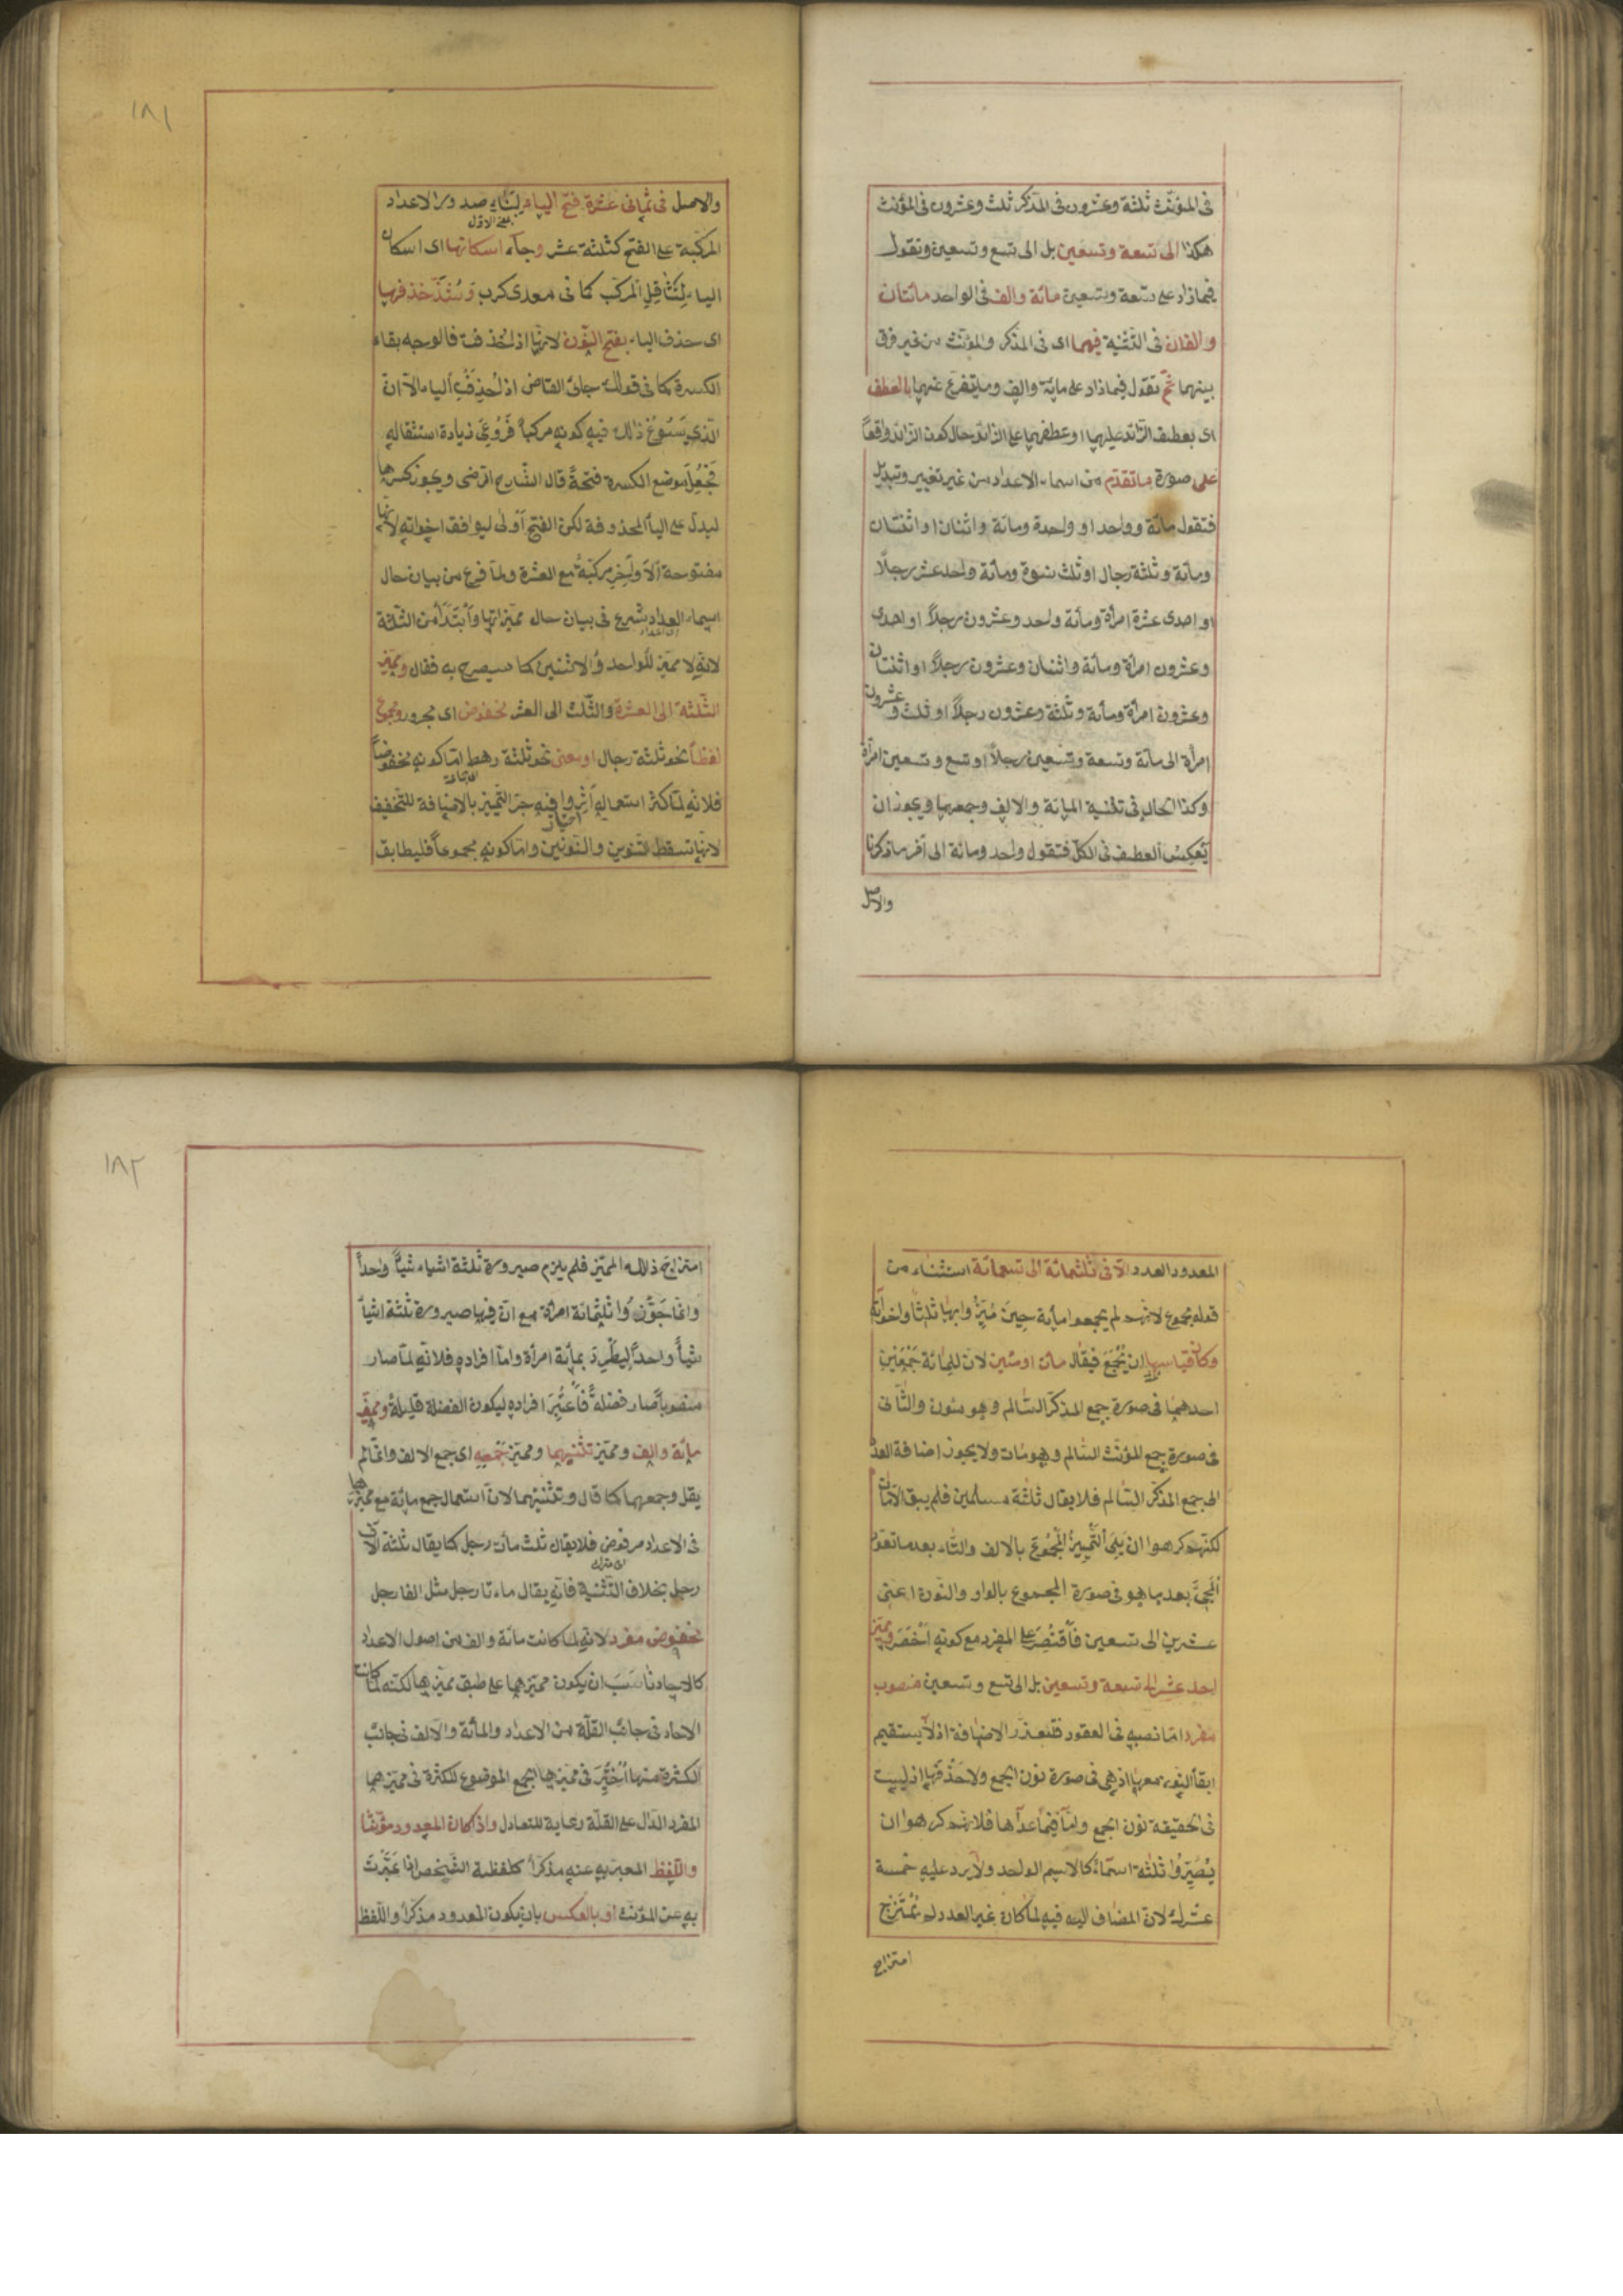 فى المؤنث ثلثة وعشرون فى المذكر ثلث وعشرون فى المؤنث
هكذا الى تسعة وتسعين بل الى تسع وتسعين وتقول
فيما زاد على تسعة وتسعين مائة والف فى الواحد مائتان
والفان فى التثنية فيهما اى فى المذكر والمؤنث من غير فرق
بينهما ثم تقول فيما زاد على مائة والف وما يتفرع عنهما بالعطف
اى بعطف الزائد عليهما او عطفهما على الزائد حال كون الزائد واقعاً
على صورة ما تقدم من اسماء الاعداد من غير تغيير وتبديل
فتقول مائة وواحد او واحدة ومائة واثنان او اثنتان
ومائة وثلثة رجال او ثلث نسوة ومائة واحد عشر رجلاً
او احدى عشرة امرأة ومائة واحد وعشرون رجلاً او احدى
وعشرون امرأة ومائة واثنان وعشرون رجلاً او اثنتان
وعشرون امرأة ومائة وثلثة وعشرون رجلاً او ثلث وعشرون
امرأة الى مائة وتسعة وتسعين رجلاً او تسع وتسعين امرأة
وكذا الحال فى تثنية المائة والالف وجمعهما ويجوز ان
يُعكس العطف فى الكل فتقول واحد ومائة الى آخر ما ذكرنا
والاصل
١٨١
والاصل فى ثمانى عشرة فتح الياء لبناء صدور الاعداد
المركبة على الفتح كثلثة عشر وجاء اسكانها اى اسكان
الياء لِتَثاقل المركب كما فى معدى كرب وشذّ حذفها
اى حذف الياء بفتح النون لانها اذا حُذفت فالوجه بقاء
الكسرة كما فى قولك جائ القاض اذا حُذفت الياء الا ان
الذى يسوغ ذلك فيه كونه مركباً فروعى زيادة استثقاله
فجُعل موضع الكسرة فتحة قال الشارح الرضى ويجوز كسرها
ليدل على الياء المحذوفة لكن الفتح اولى ليوافق اخواته لانها
مفتوحة الاواخر مركبة مع العشرة ولما فرغ من بيان حال
اسماء العدد شرع فى بيان حال مميزاتها وابتدأ من الثلثة
لانه لا مميز للواحد والاثنين كما سيصرح به فقال ومميز
الثلثة الى العشرة والثلث الى العشر مخفوض اى مجرور ومجموع
لفظاً نحو ثلثة رجال او معنى نحو ثلثة رهط اما كونه مخفوضاً
فلانه لما كثر استعماله آثروا فيه جر التمييز بالاضافة للتخفيف
لانها تسقط التنوين والنونين واما كونه مجموعاً فليطابق
المعدود العدد الا فى ثلثمائة الى تسعمائة استثناء من
قوله مجموع لانهم لم يجمعوا مائة حين ميّزوا بها ثلثاً واخواته
وكان قياسها ان تُجمع فيقال مئات او مئين لان للمائة جمعين
احدهما فى صورة جمع المذكر السالم وهو مئون والثانى
فى صورة جمع المؤنث السالم وهو مئات ولا يجوز اضافة العدد
الى جمع المذكر السالم فلا يقال ثلثة مسلمين فلم يبق الا مئات
لكنهم كرهوا ان يلى التمييز المجموع بالالف والتاء بعد ما تعود
المجئ بعد ما هو فى صورة المجموع بالواو والنون اعنى
عشرين الى تسعين فاقتُصر على المفرد مع كونه اخصر ومميز
احد عشر الى تسعة وتسعين بل الى تسع وتسعين منصوب
مفرد اما نصبه فى العقود فلتعذر الاضافة اذ لا يستقيم
ابقاء النون معها اذ هى فى صورة نون الجمع ولا حذفها اذ ليست
فى الحقيقة نون الجمع واما فيما عداها فلانهم كرهوا ان
يُصيّروا ثلثة اسماء كالاسم الواحد ولا يرد عليه خمسة
عشرك لان المضاف اليه فيه لما كان غير العدد لم يمتزج
امتزاج
١٨٢
امتزاج ذلك المميز فلم يلزم صيرورة ثلثة اشياء شيئاً واحداً
وانما جوّزوا ثلثمائة امرأة مع ان فيها صيرورة ثلثة اشياء
شيئاً واحداً ليطّرد بمائة امرأة واما افراده فلانه لما صار
منصوباً صار فضلة فاعتُبر افراده ليكون الفضلة قليلة ومميز
مائة والف ومميز تثنيهما ومميز جمعه اى جمع الالف وانما لم
يقل وجمعهما كما قال وتثنيتهما لان استعمال جمع مائة مع مميزها
فى الاعداد مرفوض فلا يقال ثلث مئات رجل كما يقال ثلثة آلاف
رجل بخلاف التثنية فانه يقال مائتا رجل مثل الفا رجل
مخفوض مفرد لانه لما كانت مائة والف من اصول الاعداد
كالاحاد ناسب ان يكون مميزهما على طبق مميزها لكنه لما كانت
الاحاد فى جانب القلة من الاعداد والمائة والالف فى جانب
الكثرة منها اختير فى مميزها الجمع الموضوع للكثرة فى مميزهما
المفرد الدال على القلة رعاية للتعادل واذا كان المعدود مؤنثا
واللفظ المعبر به عنه مذكراً كلفظة الشخص اذا عبّرت
به عن المؤنث او بالعكس بان يكون المعدود مذكراً واللفظ